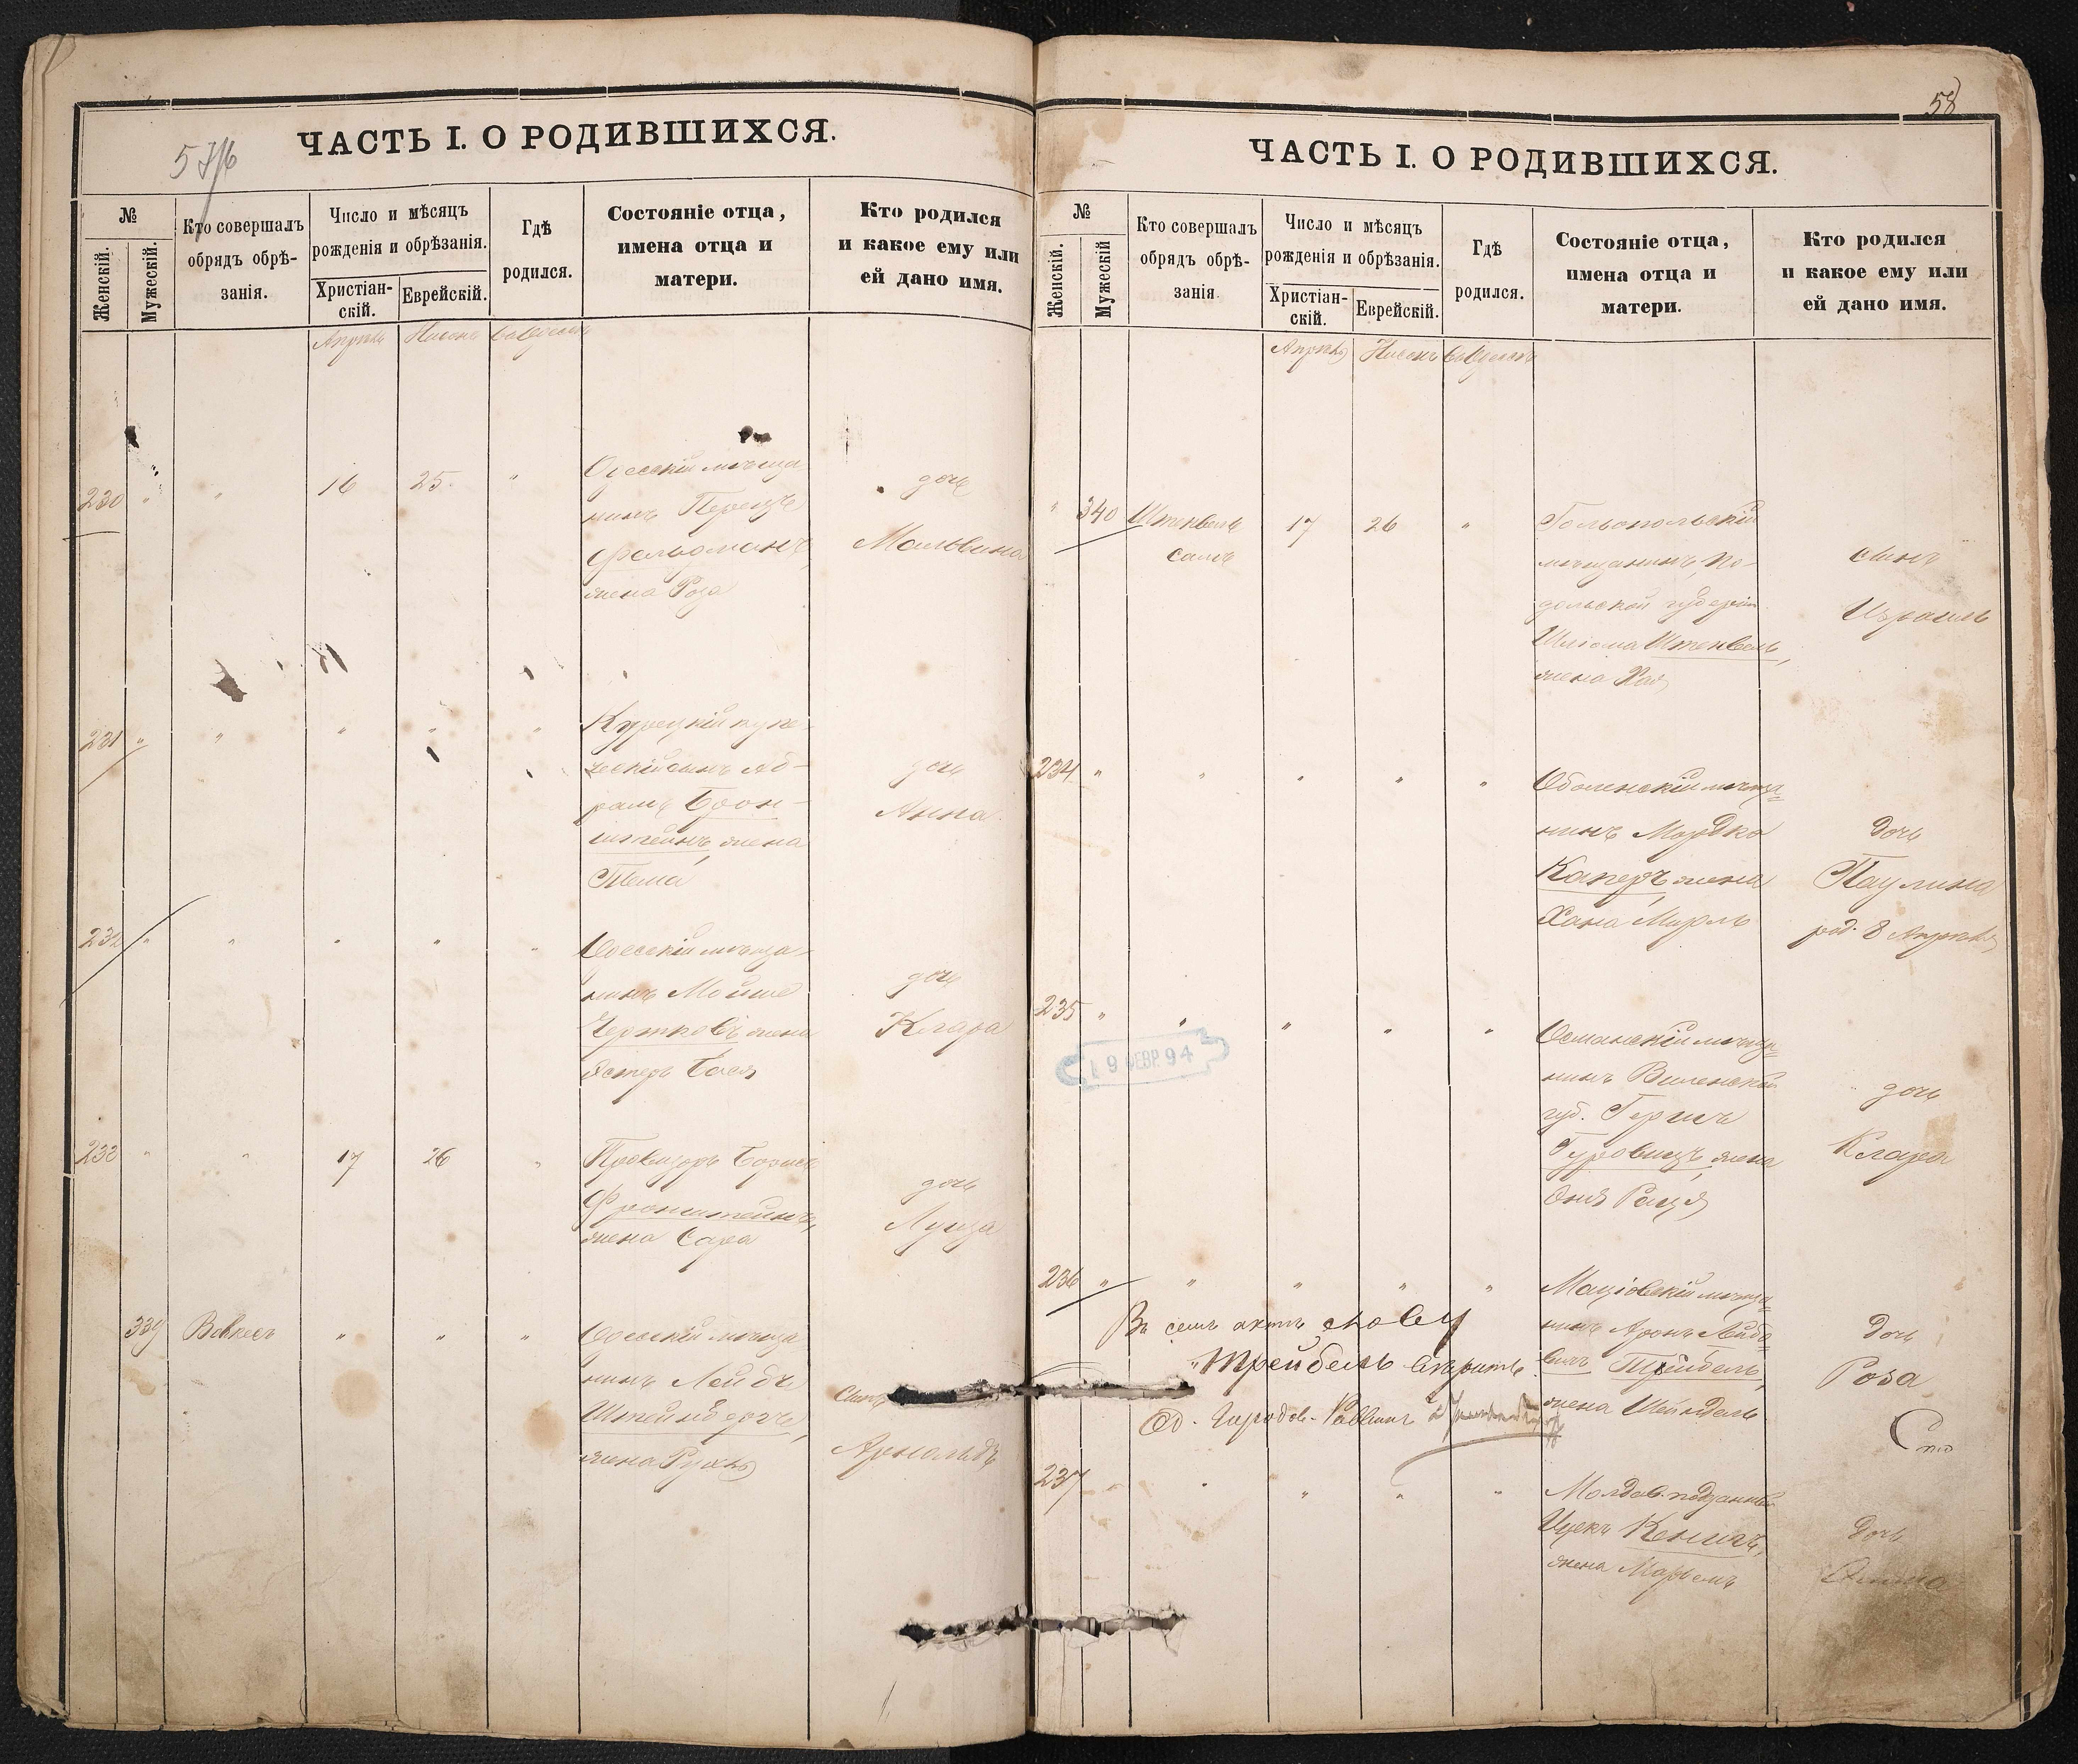 ЧАСТЬ I. О РОДИВШИХСЯ.
№
Женскій.
Мужескій.
Кто совершалъ
обрядъ обрѣ-
занія.
Число и мѣсяцъ
рожденія и обрѣзанія.
Христіан-
скій.
Еврейскій.
Гдѣ
родился.
Состояніе отца,
имена отца и
матери.
Кто родился
и какое ему или
ей дано имя.
Апрѣль Нисонъ въ Одессѣ
230 " " 16 25. "
Одесскій мѣща
нинъ Перецъ
Фельдманъ,
жена Роза
дочь
Мальвина
231 " " " " "
купе-
ческій сынъ Аб-
рамъ Брон-
штейнъ, жена
Тема
дочь
Анна
232 " " " " "
Одесскій мѣща-
нинъ Мойше
Чертковъ жена
Эстеръ Бася
дочь
Клара
233 " " 17 26 "
Провизоръ Борисъ
жена Сара
дочь
Луиза
339 " " "
Одесскій мѣща
нинъ Лейбъ
Штейнбергъ,
жена Рухль
Сынъ
Арнольдъ
58
ЧАСТЬ I. О РОДИВШИХСЯ.
№
Женскій.
Мужескій
Кто совершалъ
обрядъ обрѣ-
занія.
Число и мѣсяцъ
рожденія и обрѣзанія.
Христіан-
скій.
Еврейскій.
Гдѣ
родился.
Состояніе отца,
имена отца и
матери.
Кто родился
и какое ему или
ей дано имя.
Апрѣль Нисонъ въ Одессѣ
" 340 Штенвель
самъ
17 26 "
мѣщанинъ, По-
дольской губерніи
Шлioма Штенвель,
жена Хая
сынъ
Израиль
234 " " " " "
мѣща=
нинъ Мордко
Каперъ жена
Хана Мирль
дочь
Паулина
род. 8 Апрѣля
235 " " " " "
19 ФЕВР 94
мѣща=
нинъ Виленской
губ. Гершъ
Гуровичъ, жена
дочь
Клара
236 " " " " "
мѣща=
нинъ Аронъ Лейбо
вичъ Трейбель,
жена Шейндель
дочь
Роза
Въ семъ актѣ слову
"Трейбель вѣрить
Од. Городов. Раввинъ
237 " " " "
Молдав. подданный
Ицекъ Кенигъ,
жена Марьемъ
дочь